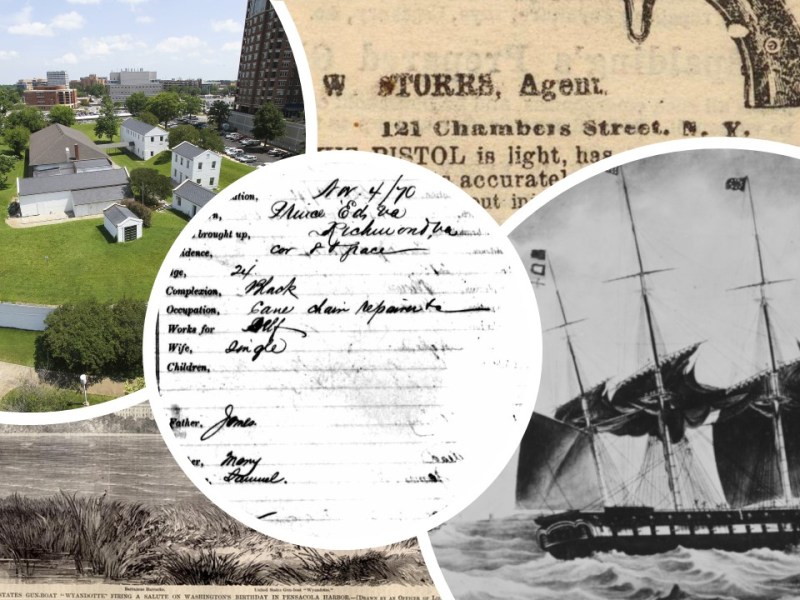 W STORRS, Agent.
121 Chambers Street. N. Y.
PISTOL is light, has
accurate
ation,
Nov. 4/70
Prince Ed, Va
brought up,
Richmond, Va
idence,
cor 8 & grace
ge,
24
Complexion,
Black
Occupation,
Cane chair
Works for
Self
Wife,
Single
Children,
Father,
James
er,
Mary
Samuel.
Barrancas Barracks.
United States Gun-boat "Wyandotte."
STATES GUN-BOAT "WYANDOTTE" FIRING A SALUTE ON WASHINGTON'S BIRTHDAY IN PENSACOLA HARBOR.—[DRAWN BY AN OFFICER OF